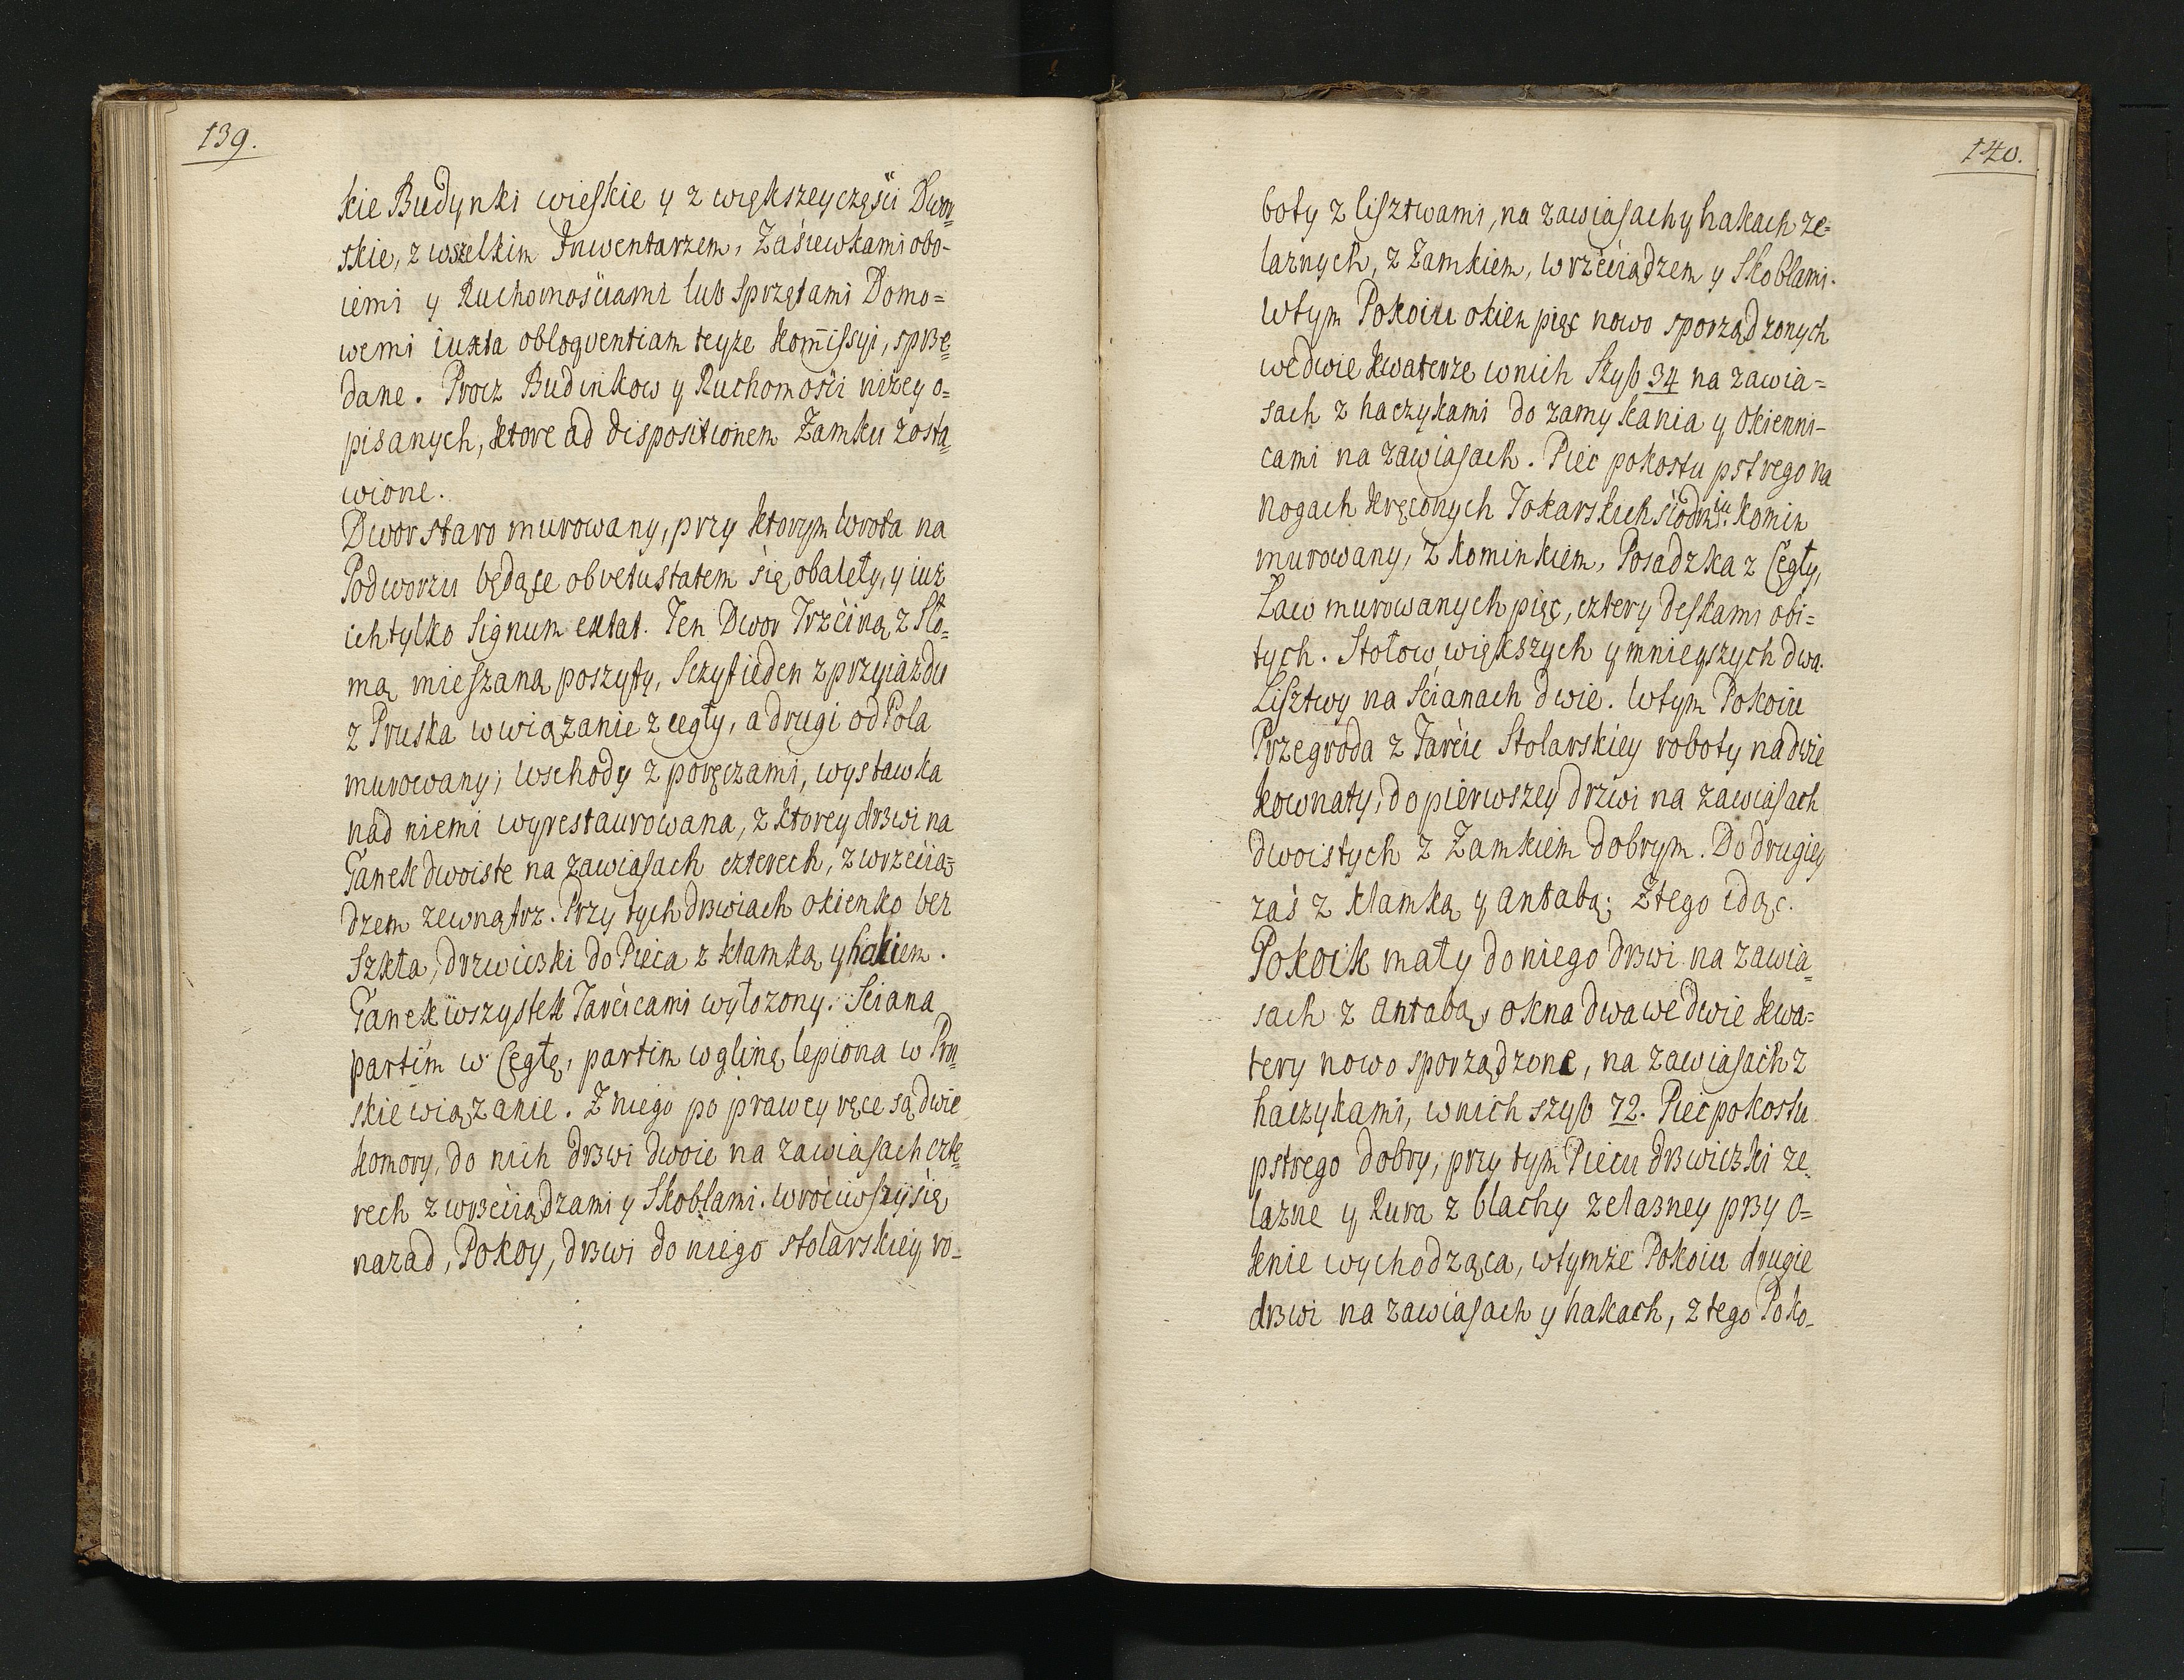 139.
kie Budynki wieskie y z większey części Dwor=
skie, z wszelkim Inwentarzem, Zasiewkami obo-
iemi y Ruchomościami lub Sprzętami Domo=
wemi iuxta obloqventiam teyze Kom̃issyi, sprze=
dane. Procz Budinkow y Ruchomości niżey o=
pisanych, ktore ad dispositionem Zamku zosta=
wione.
Dwor staro murowany, przy ktorym Wrota na
Podworzu będące obvetustatem się obaleły, y iuz
ich tylko Signum extat. Ten Dwor Trzciną z Sło=
mą mieszaną poszyty, Sczyt ieden z przyiazdu
z Pruska w wiązanie z cegły, a drugi od Pola
murowany; Wschody z poręczami, wystawka
nad niemi wyrestaurowana, z ktorey drzwi na
Ganek dwoiste na zawiasach czterech, z wrzecią=
dzem zewnątrz. Przy tych drzwiach okienko bez
Szkła, drzwiczki do Pieca z klamką y hakiem.
Ganek wszystek Tarcicami wyłozony. Sciana
partim w Cegłę, partim w glinę lepiona w Pru=
skie wiązanie. Z niego po prawey ręce są dwie
komory, do nich drzwi dwoie na zawiasach czte=
rech z wrzeciądzami y Skoblami. Wrociwszy się
nazad, Pokoy, drzwi do niego stolarskiey ro-
140.
boty z lisztwami, na zawiasach y hakach ze=
laznych, z Zamkiem, wrzeciądzem y Skoblami.
W tym Pokoiu okien pięc nowo sporządzonych
we dwie kwaterze w nich Szyb 34 na zawia=
sach z haczykami do zamykania y Okienni-
cami na zawiasach. Piec pokostu pstrego na
nogach kręconych Tokarskich siodmiu. Komin
murowany, z kominkiem, Posadzka z Cegły,
Ław murowanych pięc, cztery deskami obi=
tych. Stołow większych y mnieyszych dwa.
Lisztwy na Scianach dwie. W tym Pokoiu
Przegroda z Tarcic Stolarskiey roboty na dwie
kownaty, do pierwszey drzwi na zawiasach
dwoistych z Zamkiem dobrym. Do drugiey
zaś z klamką y antabą; Z tego idąc.
Pokoik mały do niego drzwi na zawia=
sach z antabą, okna dwa we dwie kwa=
tery nowo sporządzone, na zawiasach z
haczykami, w nich szyb 72. Piec pokostu
pstrego dobry, przy tym Piecu drzwiczki ze=
lazne y Rura z blachy zelazney przy O=
knie wychodząca, w tymze Pokoiu drugie
drzwi na zawiasach y hakach, z tego Poko-